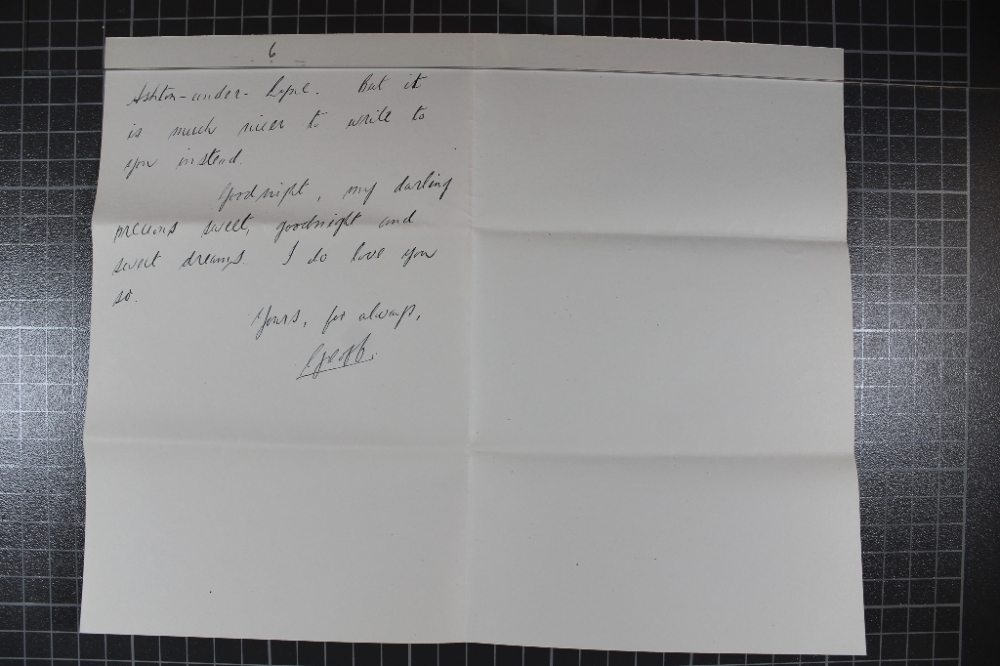 6
Ashton-under-Lyne. But it
is much nicer to write to
you instead.
Goodnight, my darling
precious sweet, goodnight and
sweet dreams. I do love you
so.
Yours, for always,
Geoff.